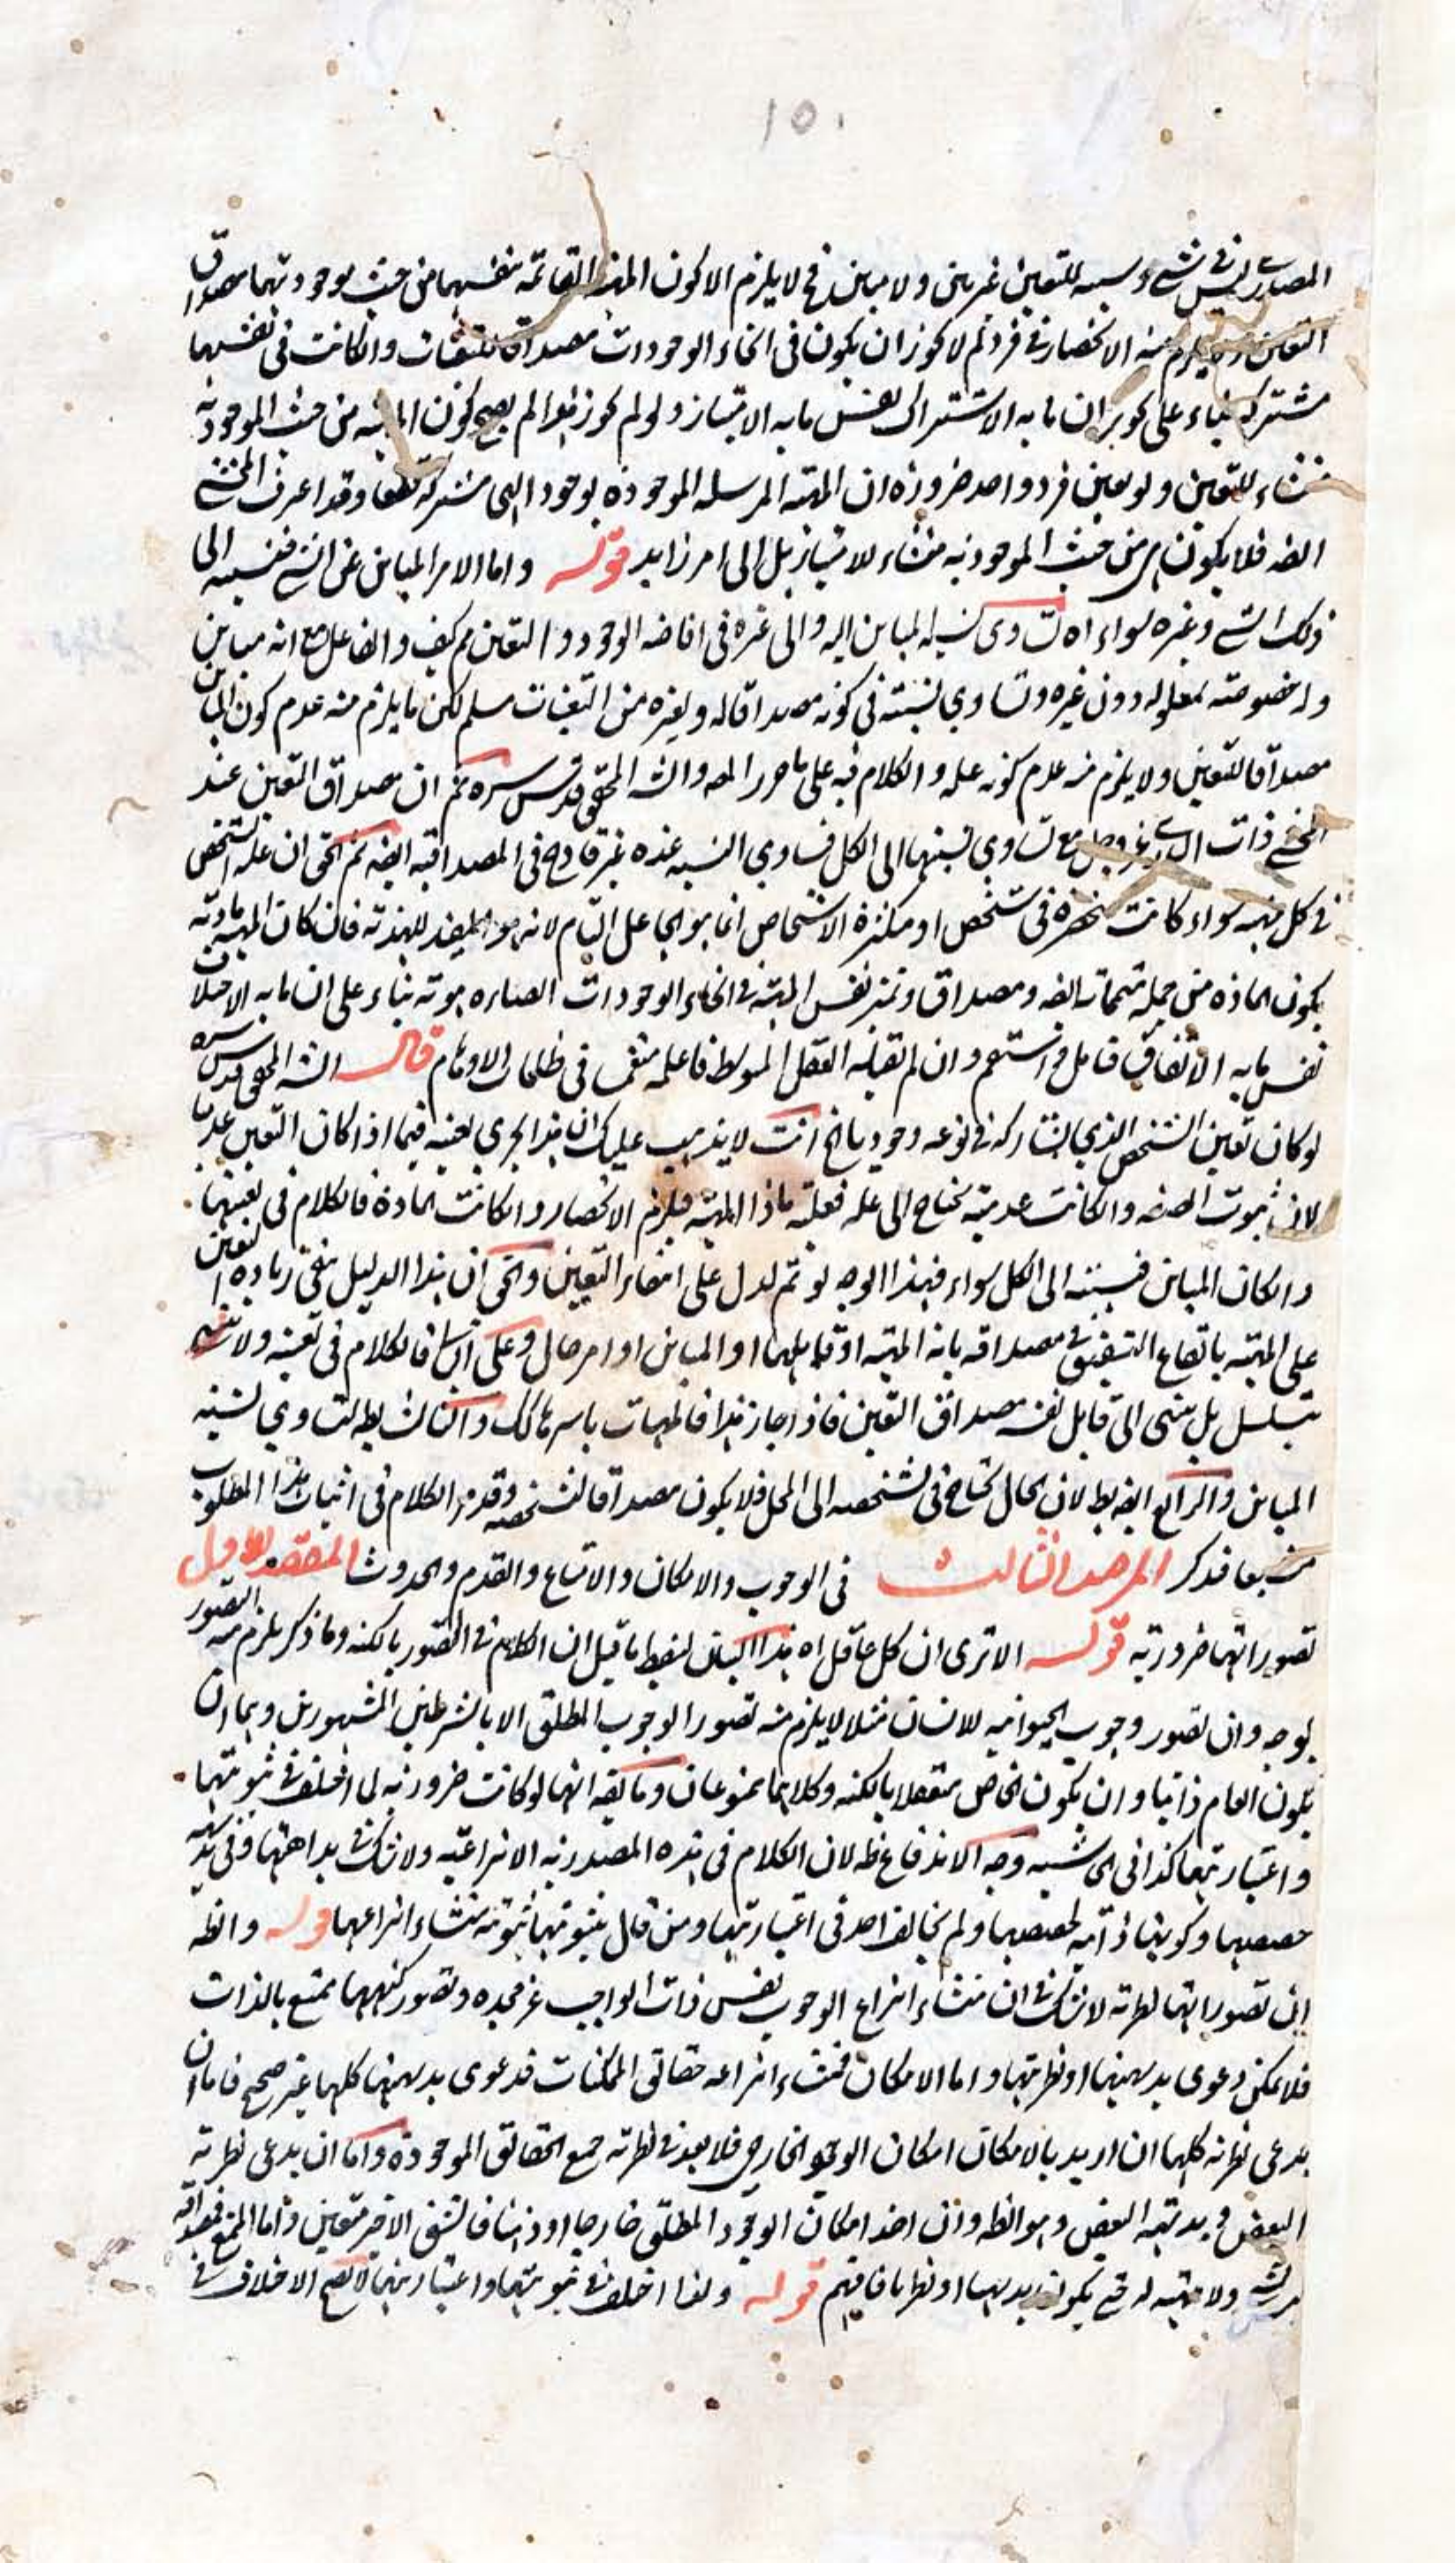 ١٥٠
المصداق ليس في شيء وسببه للتعين غير بين ولا مبين فح لا يلزم الا كون المهية القائمة بنفسها من حيث موجوديتها مصداق
التعين ولا يلزم منه الانحصار في فرد لم لا يجوز ان يكون في انحاء الوجودات مصداق للتعينات وان كانت في نفسها
مشتركة بناء على تجويز ان ما به الاشتراك نفس ما به الامتياز ولو لم يجوز هذا لم يصح كون المهية من حيث الموجودية
منشاء للتعين ولو بعين فرد واحد ضرورة ان المهية المرسلة الموجودة بوجود الهي مشتركة قطعا وقد اعترف المحشي
ايضه فلا يكون هي من حيث الموجودية منشاء للامتياز بل الى امر زايد قوله واما الامر المباين عن الشيء فنسبته الى
ذلك الشيء وغيره سواء اه تساوى نسبة المباين اليه والى غيره في افاضة الوجود والتعين مم كيف والفاعل مع انه مباين
وله خصوصية بمعلوله دون غيره وتساوي نسبته في كونه مصداقا له ولغيره من التعينات مسلم لكن ما يلزم منه عدم كون المباين
مصداقا للتعين ولا يلزم منه عدم كونه علة والكلام فيه على ما حرر المص والش المحقق قدس سره ثم ان مصداق التعين عند
المحشي ذات الباري عز وجل مع تساوي نسبتها الى الكل فتساوي النسبة عنده غير قادح في المصداقية ايضه ثم الحق ان علة التشخص
في كل مهية سواء كانت منحصرة في شخص او متكثرة الاشخاص انما هو الجاعل التام لانه هو المفيد للهذية فان كان المهية مادية
يكون المادة من جملة متممات ايضه ومصداق وتميز نفس المهية في انحاء الوجودات الصادرة هوية بناء على ان ما به الاختلاف
نفس ما به الاتفاق فتامل واستقم وان لم تقبله العقل المتوسط فاعله منغمس في ظلمات الاوهام قال الش المحقق قدس سره
لو كان تعين الشخص الذي يشاركه في نوعه وجوديا الخ انت لا يذهب عليك ان هذا يجري بعينه فيما اذا كان التعين عدميا
لان ثبوت الصفة وان كانت عدمية يحتاج الى علة فعلته ماذا المهية فيلزم الانحصار وان كانت المادة فالكلام في تعينها
وان كان المباين فنسبته الى الكل سواء فهذا الوجه لو تم لدل على انتفاء التعين والحق ان هذا الدليل ينفي زيادة التعين
على المهية بايقاع التشقيق في مصداقه بانه المهية او قابلها او المباين او امر حال وعلى الثاني فالكلام في تعينه ولا يتسلسل
تسلسل بل ينتهي الى قابل نفسه مصداق التعين فاذا جاز هذا فالمهيات باسرها كك والثالث بط لتساوي نسبة
المباين والرابع ايضه بط لان الحال يحتاج في تشخصه الى المحل فلا يكون مصداقا لتشخصه وقد مر الكلام في اثبات هذا المطلوب
مشبعا فتذكر المرصد الثالث في الوجوب والامكان والامتناع والقدم والحدوث المقصد الاول
تصوراتها ضرورية قوله الا ترى ان كل عاقل اه هذا البيان لسقط ما قيل ان الكلام في التصور بالكنه وما ذكر يلزم منه التصور
بوجه وان تصور وجوب الحيوانية للانسان مثلا لا يلزم منه تصور الوجوب المطلق الا بالشرطين المشهورين وهما ان
يكون العام ذاتيا وان يكون الخاص متعقلا بالكنه وكلاهما ممنوعان وما يقه انها لو كانت ضرورية لما اختلف في ثبوتها
واعتباريتها كذا في الحاشية وجه الاندفاع ظ لان الكلام في هذه المصدرية الانتزاعية ولا شك في بداهتها وفي بداهة
حصصها وكونها ذاتية لحصصها ولم يخالف احد في اعتباريتها ومن قال بثبوتها ثبوته منشاء انتزاعها قوله والظ
ان تصوراتها نظرية لا شك في ان منشاء انتزاع الوجوب نفس ذات الواجب عز مجده وتصور كنهها ممتنع بالذات
فلا يمكن دعوى بديهيتها او نظريتها واما الامكان فمنشاء انتزاعه حقائق الممكنات فدعوى بديهيتها كلها غير صحيح فاما ان
يدعى نظرية كلها ان اريد بالامكان امكان الوجود الخارجي فلا بعد في نظرية جميع الحقائق الموجودة واما ان يدعى نظرية
البعض وبديهية البعض وهو الظ وان اخذ امكان الوجود المطلق خارجا او ذهنا فالشق الاخير متعين واما الممتنع فمصداقه
ولا مهية له حتى يكون بديهيا او نظريا فافهم قوله ولذا اختلف في ثبوتها واعتباريتها لا يصح الاختلاف في